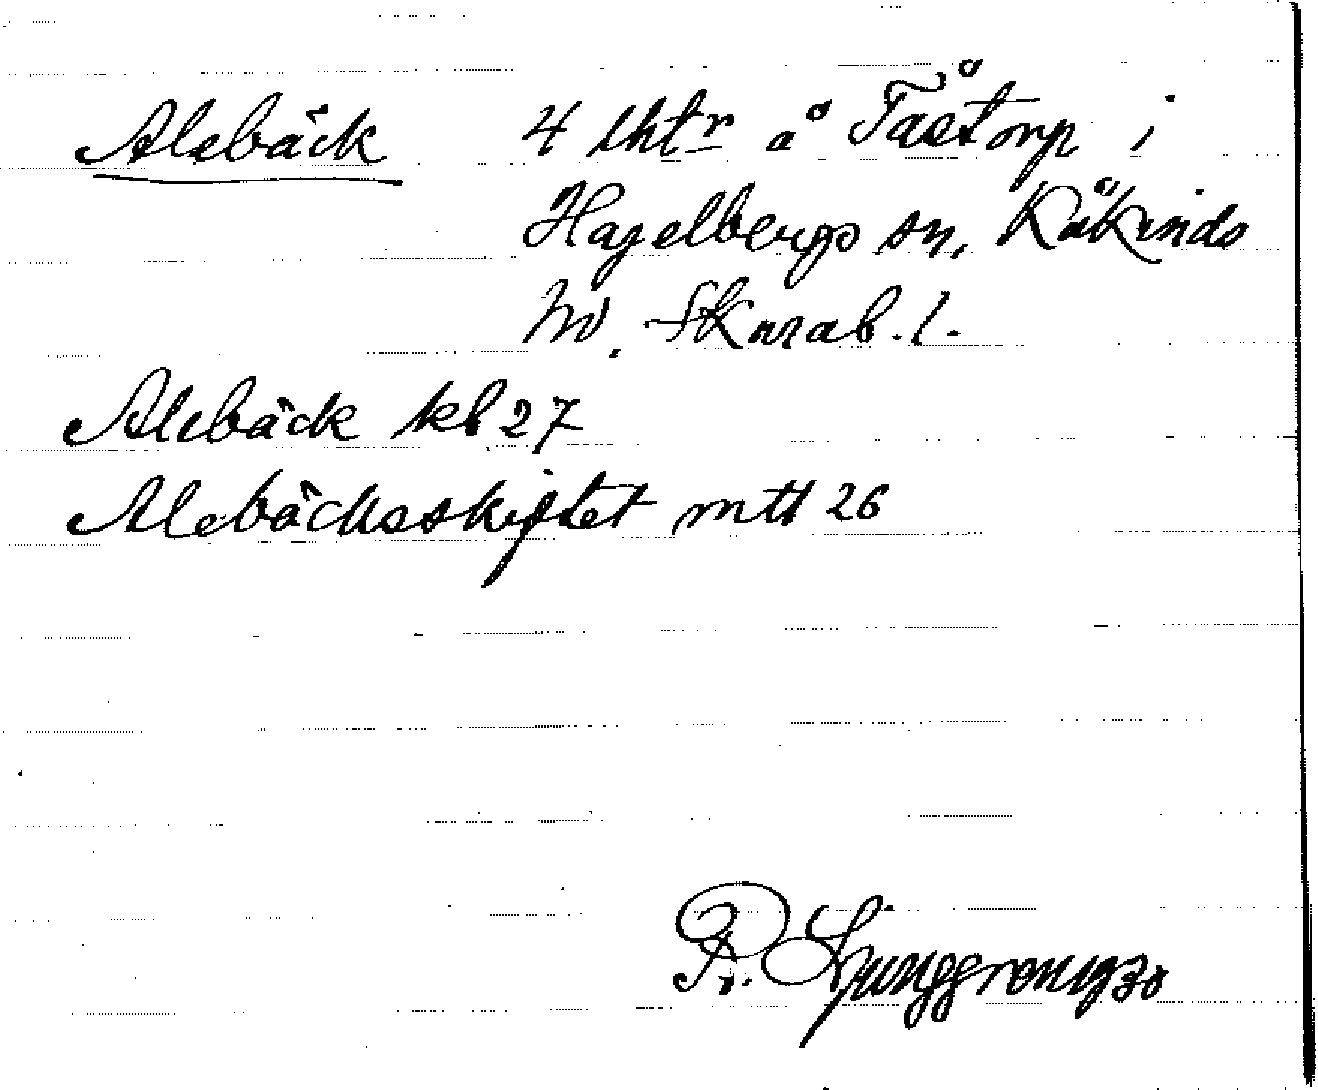 Alebäck 4 lhtr å Tåstorp i
Hagelbergs sn, Kåkinds
hd. Skarab. l.
Alebäck kb 27
Alebäcksskiftet mtt 26
R. Ljunggren 1930